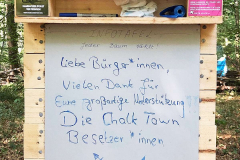 Liebe Bürger*innen,
Vielen Dank für
Eure großartige Unterstützung
Die Chalk Town
Besetzer*innen